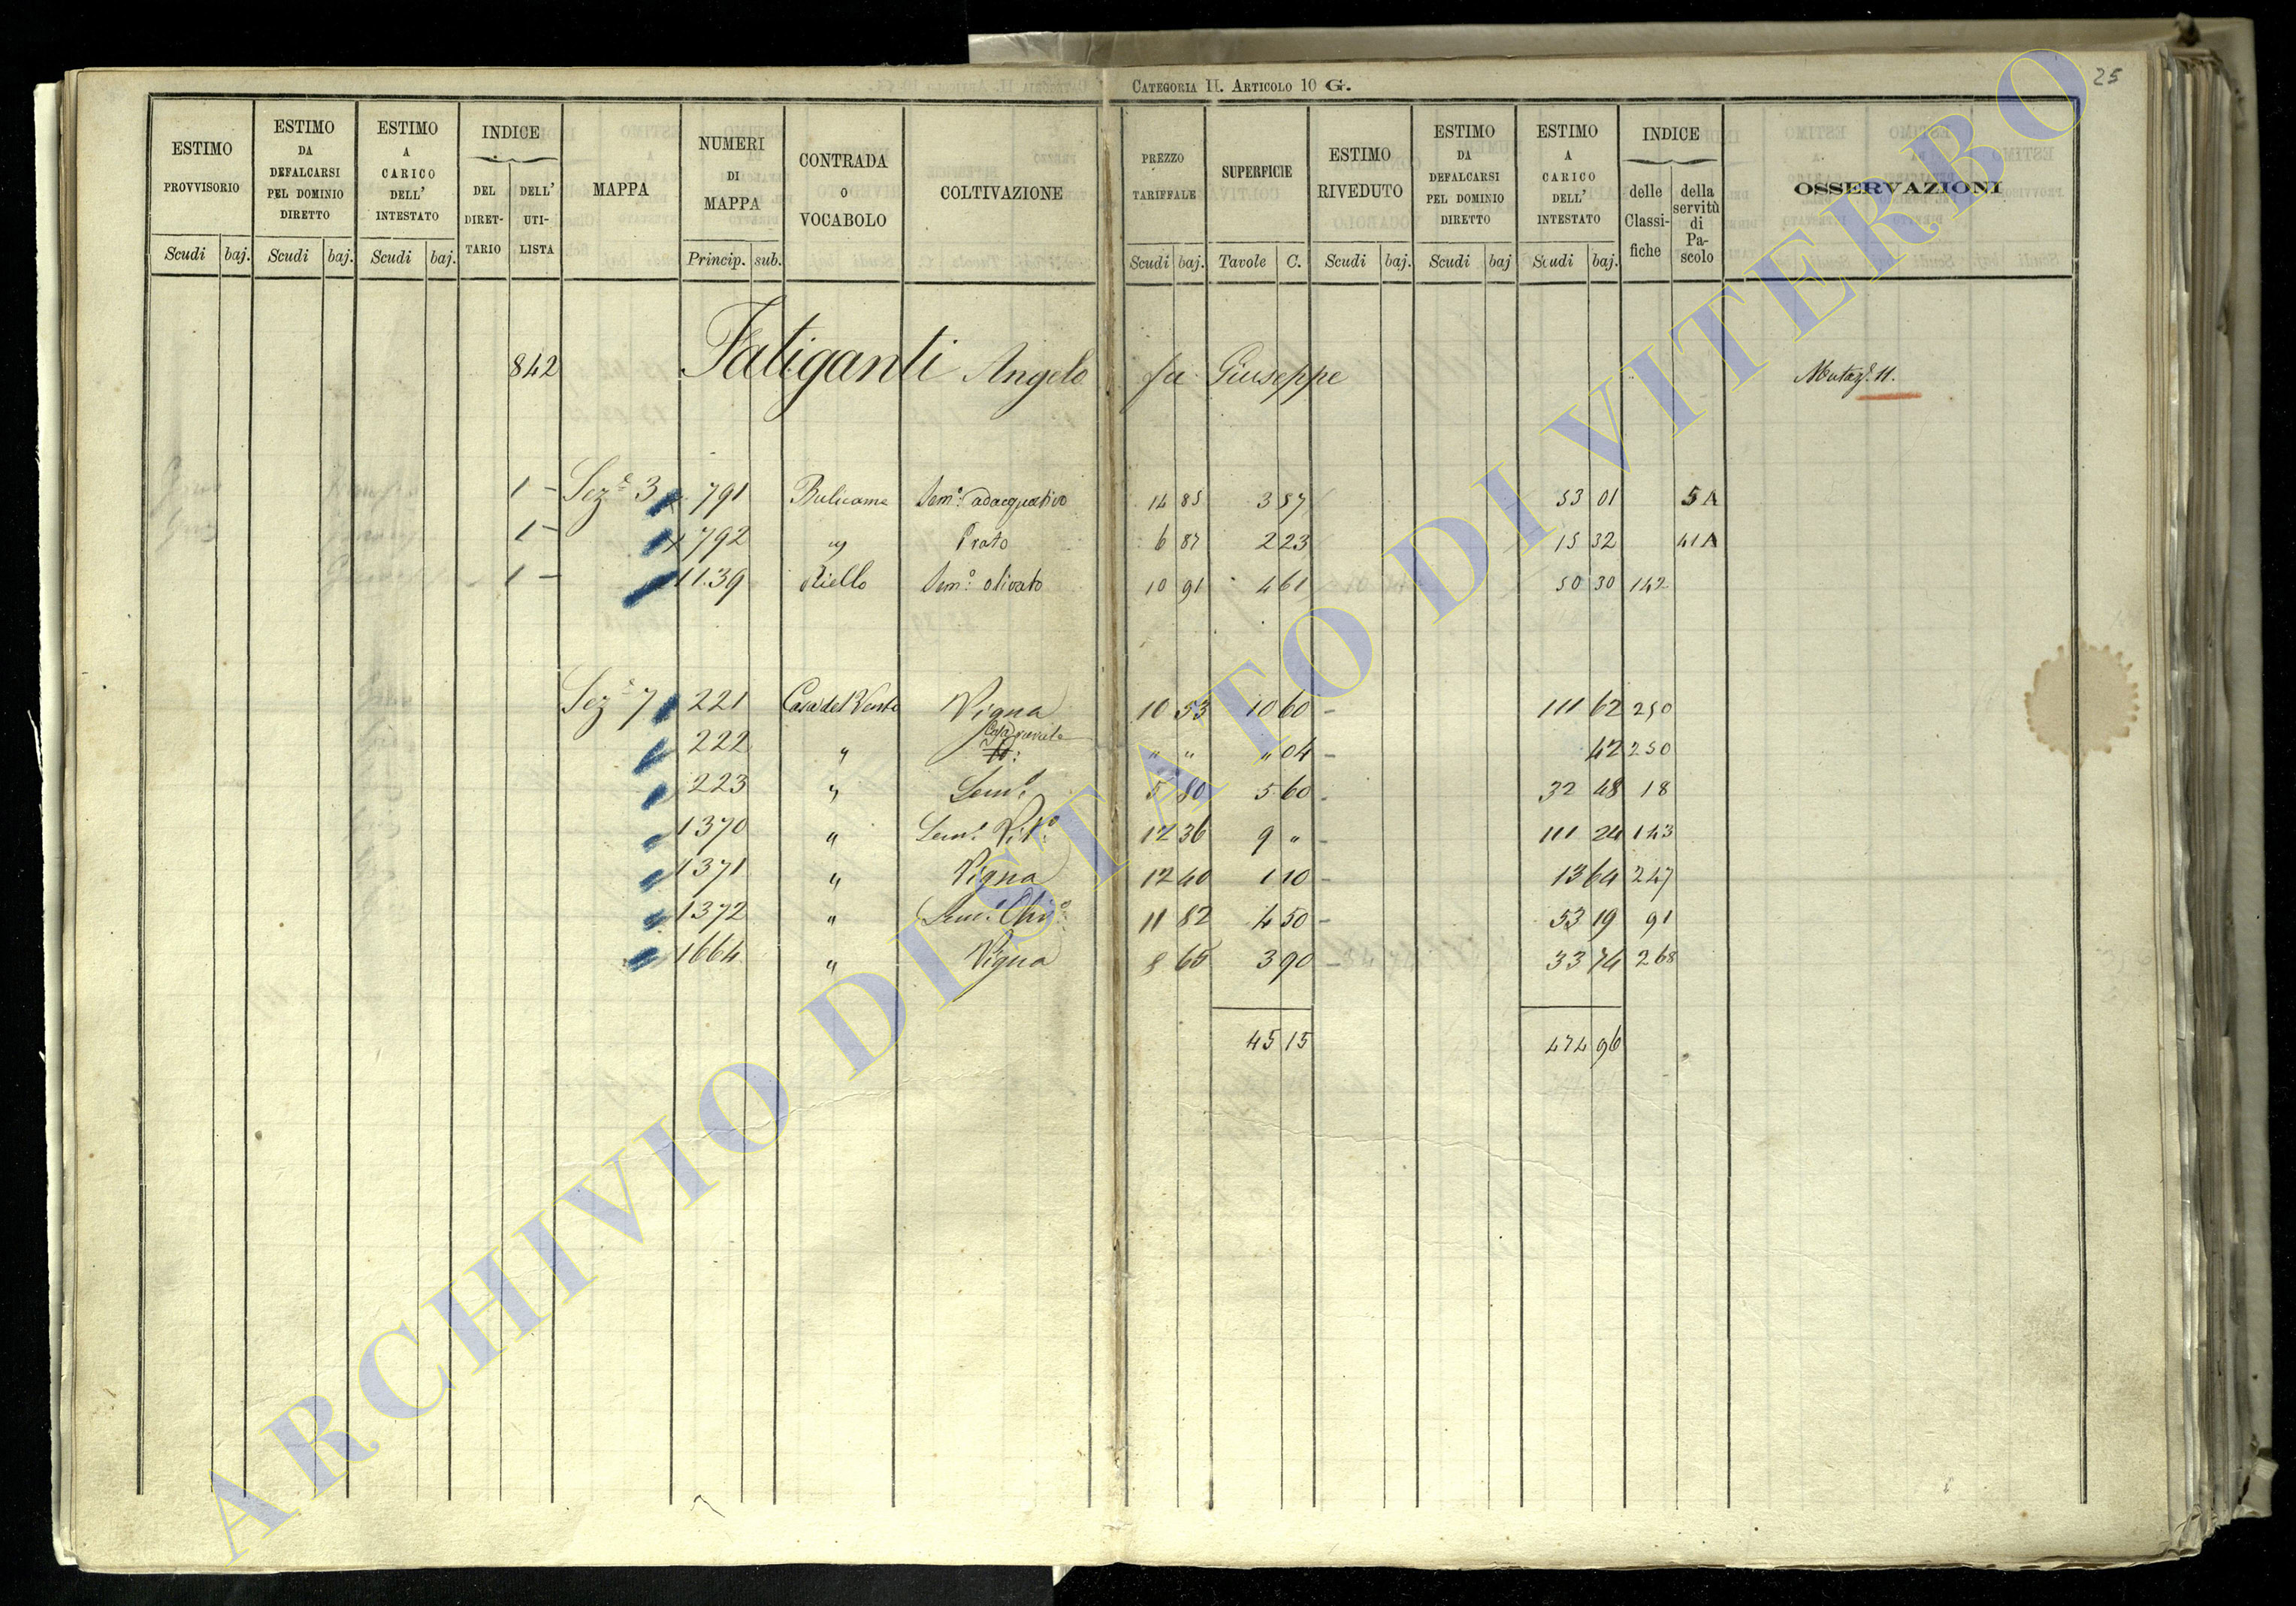 CATEGORIA II. ARTICOLO 10 G.
25
ESTIMO PROVVISORIO | ESTIMO DA DEFALCARSI PEL DOMINIO DIRETTO | ESTIMO A CARICO DELL' INTESTATO | INDICE DEL DIRET- TARIO | DELL' UTI- LISTA | MAPPA | NUMERI DI MAPPA | CONTRADA O VOCABOLO | COLTIVAZIONE | PREZZO TARIFFALE | SUPERFICIE | ESTIMO RIVEDUTO | ESTIMO DA DEFALCARSI PEL DOMINIO DIRETTO | ESTIMO A CARICO DELL' INTESTATO | INDICE delle Classi- fiche | della servitù di Pa- scolo | OSSERVAZIONI
Scudi baj. Scudi baj. Scudi baj. Princip. sub. Scudi baj. Tavole C. Scudi baj. Scudi baj Scudi baj.
842 Fatiganti Angelo fu Giuseppe Mutaz.e 11.
1 – Sez.e 3 791 Bulicame Sem.o adacquativo 14 85 3 57 53 01 5 A
1 – 792 " Prato 6 87 2 23 15 32 41 A
1 – 1139 Riello Sem.o olivato 10 91 4 61 50 30 142
Sez.e 7 221 Casa del Vento Vigna 10 53 10 60 – 111 62 250
222 " Casa rurale " " " 04 – 42 250
223 " Sem.o 5 80 5 60 – 32 48 18
1370 " Sem.o Vit.o 12 36 9 " – 111 24 143
1371 " Vigna 12 40 1 10 – 13 64 247
1372 " Sem.o Oliv.o 11 82 4 50 – 53 19 91
1664 " Vigna 8 65 3 90 – 33 74 268
45 15 474 96
ARCHIVIO DI STATO DI VITERBO